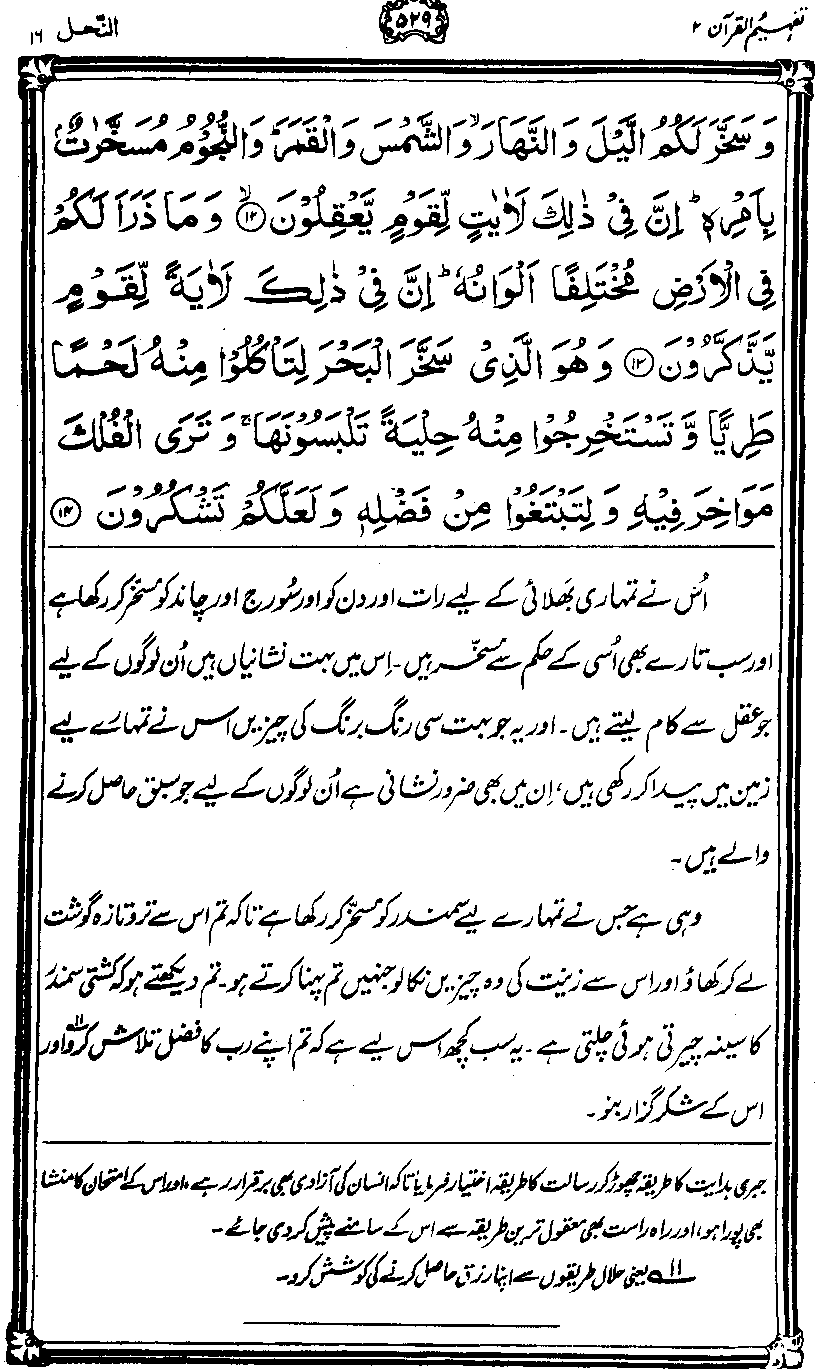 تفہیم القرآن ۲
۵۲۹
النحل ۱۶
وَ سَخَّرَ لَكُمُ الَّيْلَ وَ النَّهَارَ ۙ وَ الشَّمْسَ وَ الْقَمَرَ ؕ وَ النُّجُوْمُ مُسَخَّرٰتٌۢ
بِاَمْرِهٖ ؕ اِنَّ فِيْ ذٰلِكَ لَاٰيٰتٍ لِّقَوْمٍ يَّعْقِلُوْنَ ۙ﴿۱۲﴾ وَ مَا ذَرَاَ لَكُمْ
فِي الْاَرْضِ مُخْتَلِفًا اَلْوَانُهٗ ؕ اِنَّ فِيْ ذٰلِكَ لَاٰيَةً لِّقَوْمٍ
يَّذَّكَّرُوْنَ ﴿۱۳﴾ وَ هُوَ الَّذِيْ سَخَّرَ الْبَحْرَ لِتَاْكُلُوْا مِنْهُ لَحْمًا
طَرِيًّا وَّ تَسْتَخْرِجُوْا مِنْهُ حِلْيَةً تَلْبَسُوْنَهَا ۚ وَ تَرَى الْفُلْكَ
مَوَاخِرَ فِيْهِ وَ لِتَبْتَغُوْا مِنْ فَضْلِهٖ وَ لَعَلَّكُمْ تَشْكُرُوْنَ ﴿۱۴﴾
اُس نے تمہاری بھَلائی کے لیے رات اور دن کو اور سُورج اور چاند کو مسخّر کر رکھا ہے
اور سب تارے بھی اُسی کے حکم سے مُسخّر ہیں۔ اِس میں بہت نشانیاں ہیں اُن لوگوں کے لیے
جو عقل سے کام لیتے ہیں۔ اور یہ جو بہت سی رنگ برنگ کی چیزیں اس نے تمہارے لیے
زمین میں پیدا کر رکھی ہیں، اِن میں بھی ضرور نشانی ہے اُن لوگوں کے لیے جو سبق حاصل کرنے
والے ہیں۔
وہی ہے جس نے تمہارے لیے سمندر کو مسخّر کر رکھا ہے تاکہ تم اس سے تروتازہ گوشت
لے کر کھاؤ اور اس سے زینت کی وہ چیزیں نکالو جنہیں تم پہنا کرتے ہو۔ تم دیکھتے ہو کہ کشتی سمندر
کا سینہ چیرتی ہوئی چلتی ہے۔ یہ سب کچھ اس لیے ہے کہ تم اپنے رب کا فضل تلاش کرو۱۱ اور
اس کے شکر گزار بنو۔
جبری ہدایت کا طریقہ چھوڑ کر رسالت کا طریقہ اختیار فرمایا تاکہ انسان کی آزادی بھی برقرار رہے، اور اس کے امتحان کا منشا
بھی پورا ہو، اور راہ راست بھی معقول ترین طریقہ سے اس کے سامنے پیش کر دی جائے۔
۱۱ یعنی حلال طریقوں سے اپنا رزق حاصل کرنے کی کوشش کرو۔